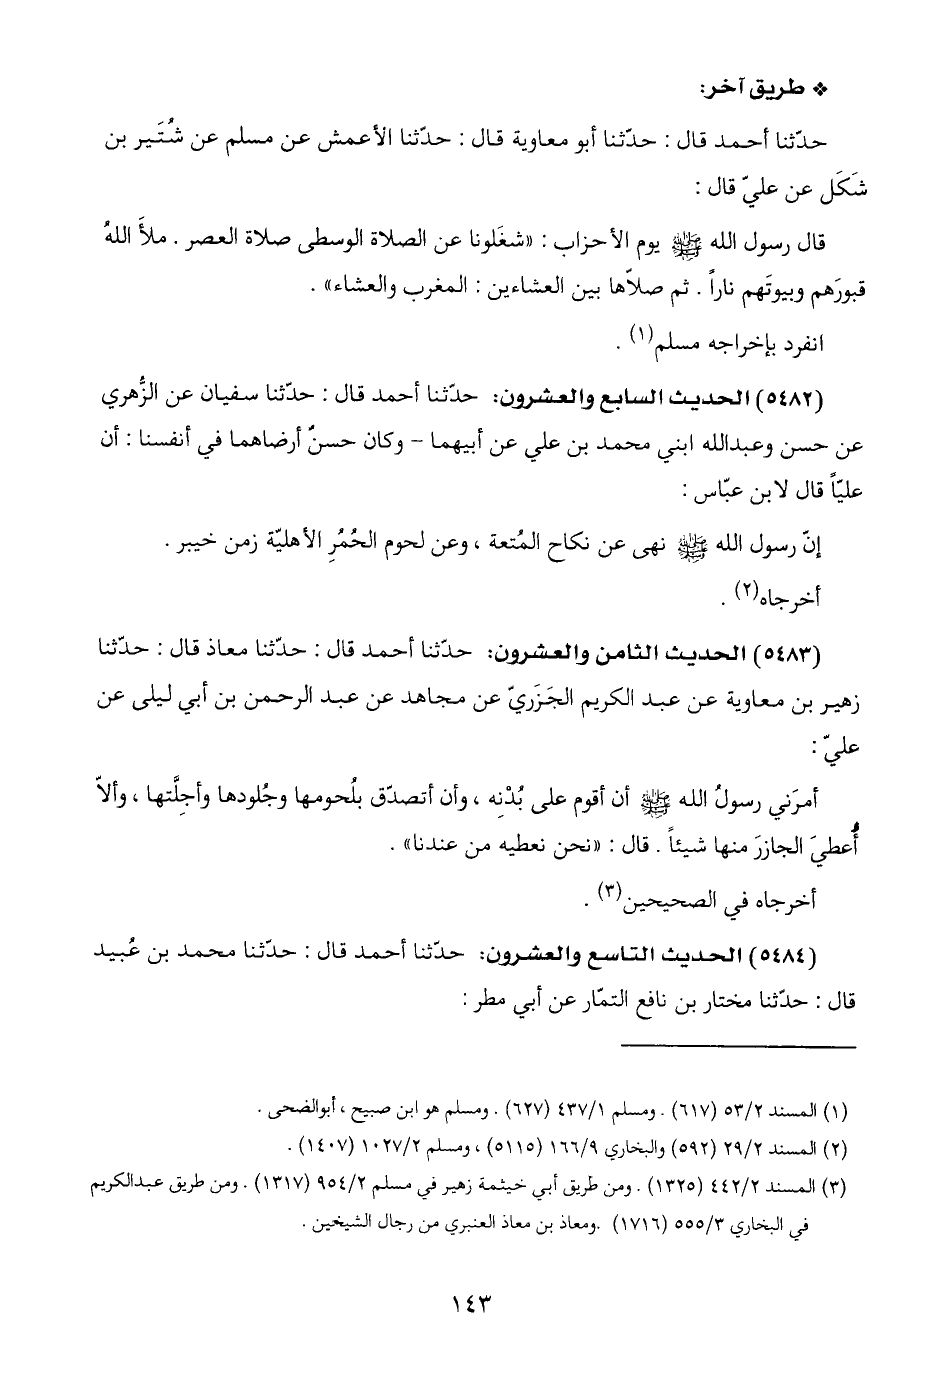 ❖ طريق آخر:
حدّثنا أحمد قال : حدّثنا أبو معاوية قال : حدّثنا الأعمش عن مسلم عن شُتَير بن
شَكَل عن عليّ قال :
قال رسول الله ﷺ يوم الأحزاب : «شغَلونا عن الصلاة الوسطى صلاة العصر . ملأَ اللهُ
قبورَهم وبيوتَهم ناراً . ثم صلاّها بين العشاءين : المغرب والعشاء» .
انفرد بإخراجه مسلم(١) .
(٥٤٨٢) الحديث السابع والعشرون: حدّثنا أحمد قال : حدّثنا سفيان عن الزُّهري
عن حسن وعبدالله ابني محمد بن علي عن أبيهما - وكان حسنٌ أرضاهما في أنفسنا : أن
عليّاً قال لابن عبّاس :
إنّ رسول الله ﷺ نهى عن نكاح المُتعة ، وعن لحوم الحُمُرِ الأهليّة زمن خيبر .
أخرجاه(٢) .
(٥٤٨٣) الحديث الثامن والعشرون: حدّثنا أحمد قال : حدّثنا معاذ قال : حدّثنا
زهير بن معاوية عن عبد الكريم الجَزَريّ عن مجاهد عن عبد الرحمن بن أبي ليلى عن
عليّ :
أمرَني رسولُ الله ﷺ أن أقوم على بُدْنِه ، وأن أتصدّق بلُحومها وجُلودها وأجلَّتِها ، وألاّ
أُعطيَ الجازرَ منها شيئاً . قال : «نحن نعطيه من عندنا» .
أخرجاه في الصحيحين(٣) .
(٥٤٨٤) الحديث التاسع والعشرون: حدّثنا أحمد قال : حدّثنا محمد بن عُبيد
قال : حدّثنا مختار بن نافع التمّار عن أبي مطر :
(١) المسند ٥٣/٢ (٦١٧) . ومسلم ٤٣٧/١ (٦٢٧) . ومسلم هو ابن صبيح ، أبوالضحى .
(٢) المسند ٢٩/٢ (٥٩٢) والبخاري ١٦٦/٩ (٥١١٥) ، ومسلم ١٠٢٧/٢ (١٤٠٧) .
(٣) المسند ٤٤٢/٢ (١٣٢٥) . ومن طريق أبي خيثمة زهير في مسلم ٩٥٤/٢ (١٣١٧) . ومن طريق عبدالكريم
في البخاري ٥٥٥/٣ (١٧١٦) .ومعاذ بن معاذ العنبري من رجال الشيخين .
١٤٣